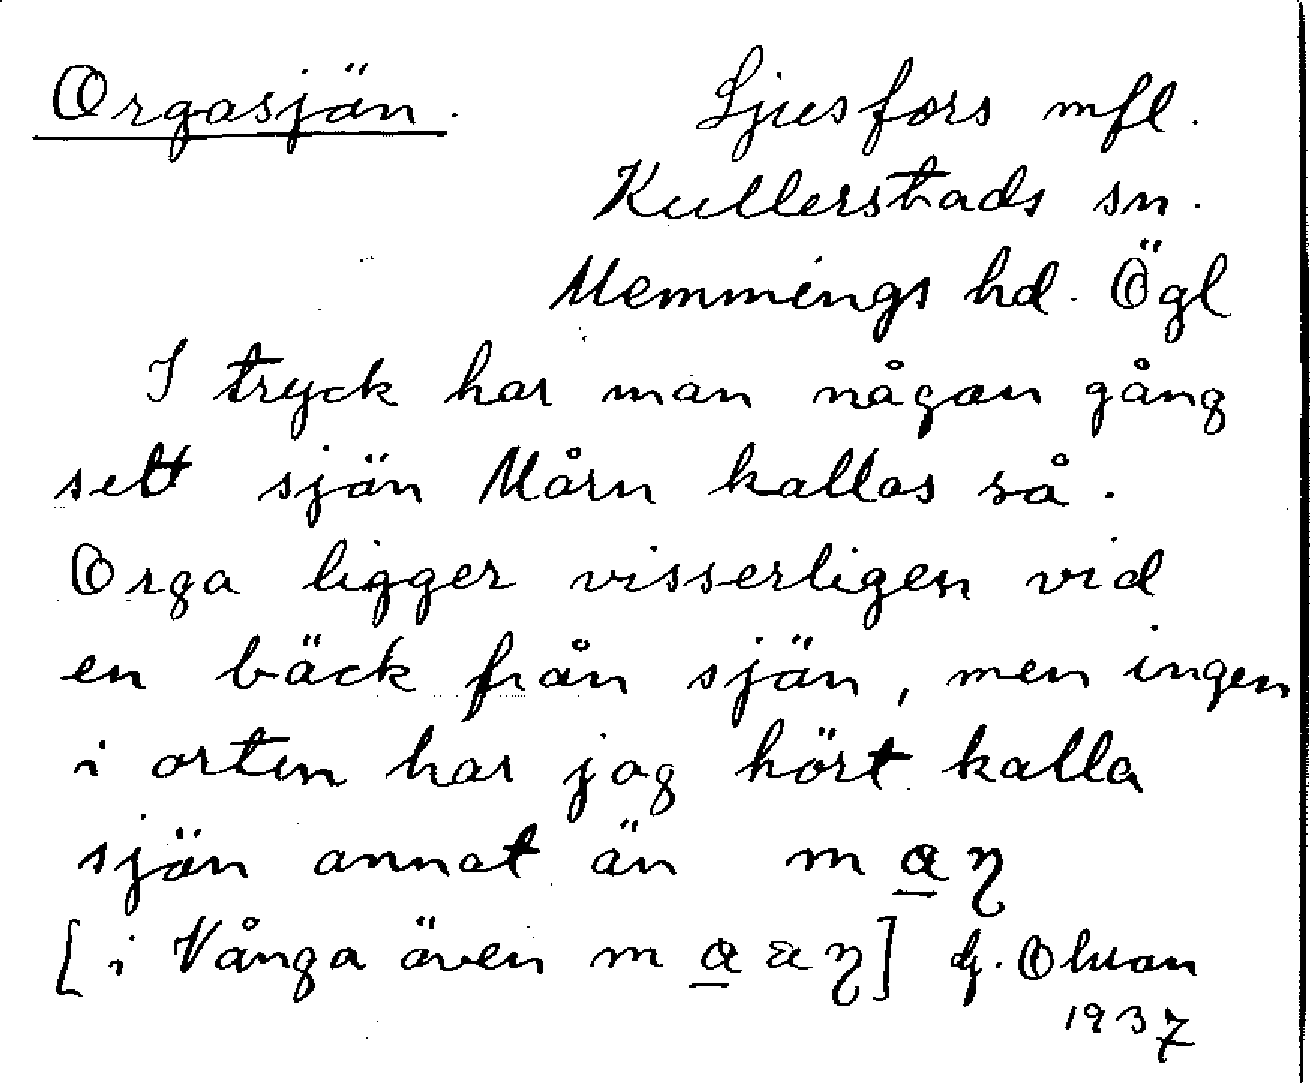 Orgasjön.
Ljusfors mfl.
Kullerstads sn.
Memmings hd. Ögl
I tryck har man någon gång
sett sjön Mårn kallas så.
Orga ligger visserligen vid
en bäck från sjön, men ingen
i orten har jag hört kalla
sjön annat än m
[i Vånga även m
1937